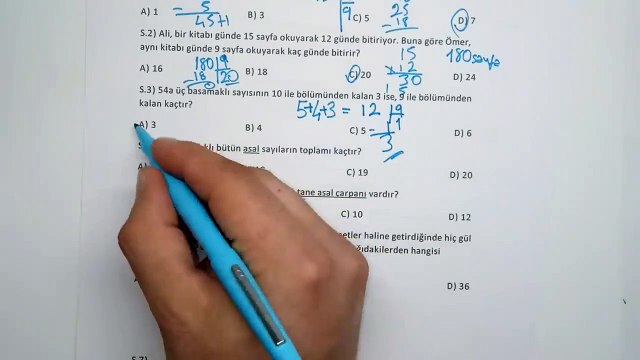 A) 1 B) 3 C) 5 D) 7
- 5
45+1
9
25
- 18
S.2) Ali, bir kitabı günde 15 sayfa okuyarak 12 günde bitiriyor. Buna göre Ömer,
aynı kitabı günde 9 sayfa okuyarak kaç günde bitirir?
15
x 12
30
15
180 sayfa
180 9
- 18 20
0
A) 16 B) 18 C) 20 D) 24
S.3) 54a üç basamaklı sayısının 10 ile bölümünden kalan 3 ise, 9 ile bölümünden
kalan kaçtır?
5+4+3 = 12 9
1
3
A) 3 B) 4 C) 5 D) 6
bütün asal sayıların toplamı kaçtır?
C) 19 D) 20
tane asal çarpanı vardır?
C) 10 D) 12
haline getirdiğinde hiç gül
hangisi
D) 36